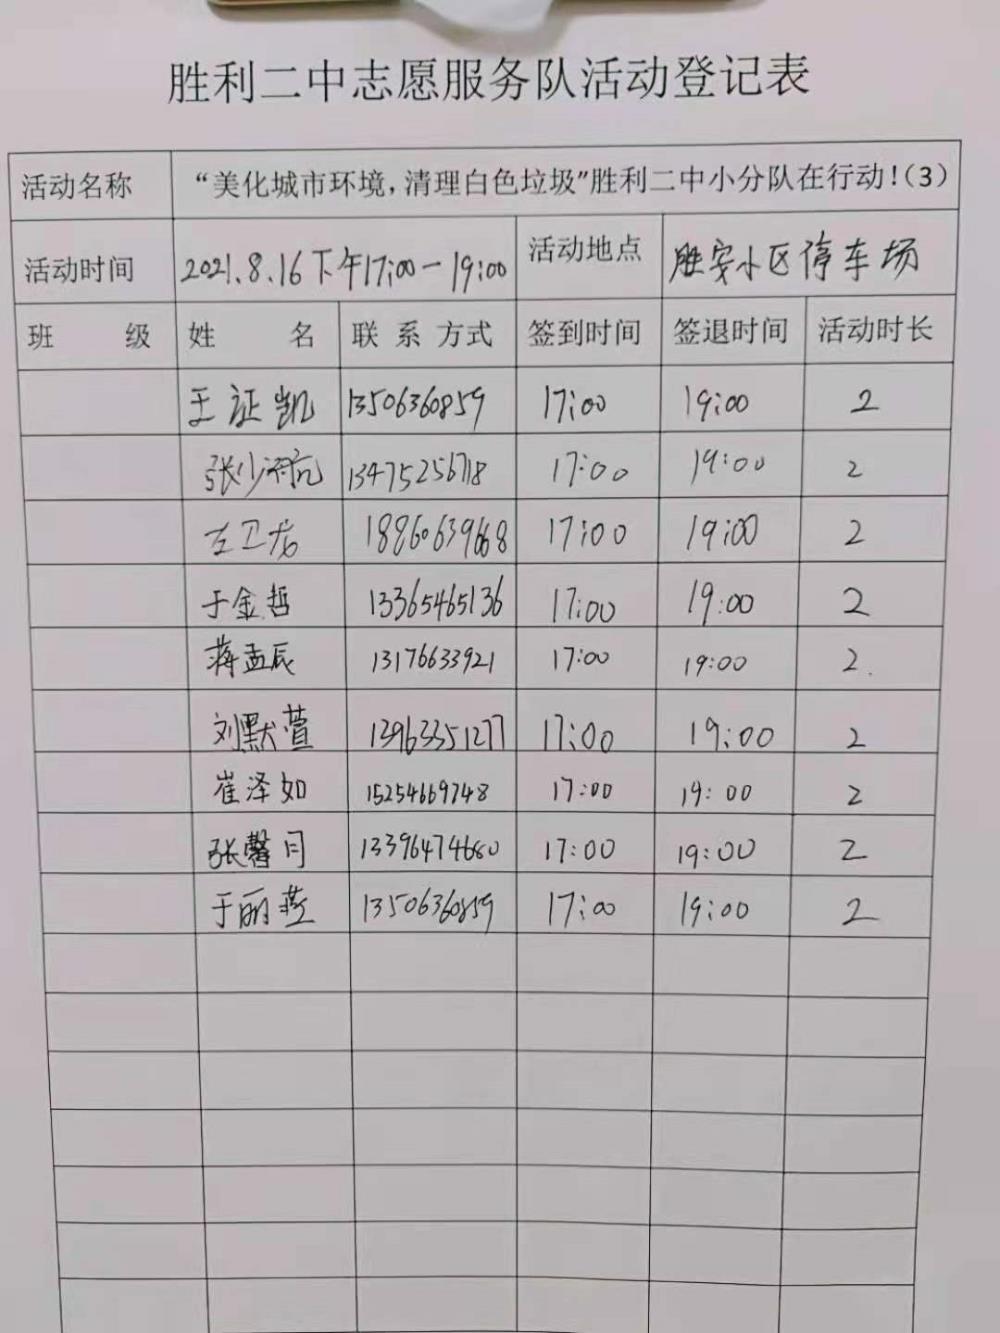 胜利二中志愿服务队活动登记表
活动名称 “美化城市环境，清理白色垃圾”胜利二中小分队在行动！（3）
活动时间 2021.8.16下午17:00-19:00 活动地点 胜安小区停车场
班 级 姓 名 联系方式 签到时间 签退时间 活动时长
王证凯 13506360859 17:00 19:00 2
张少 13475256718 17:00 19:00 2
左卫龙 17:00 19:00 2
于金哲 13365465136 17:00 19:00 2
蒋孟辰 13176633921 17:00 19:00 2.
刘默萱 13963351277 17:00 19:00 2
崔泽如 15254669748 17:00 19:00 2
张馨月 13396474680 17:00 19:00 2
于丽燕 13506360859 17:00 19:00 2